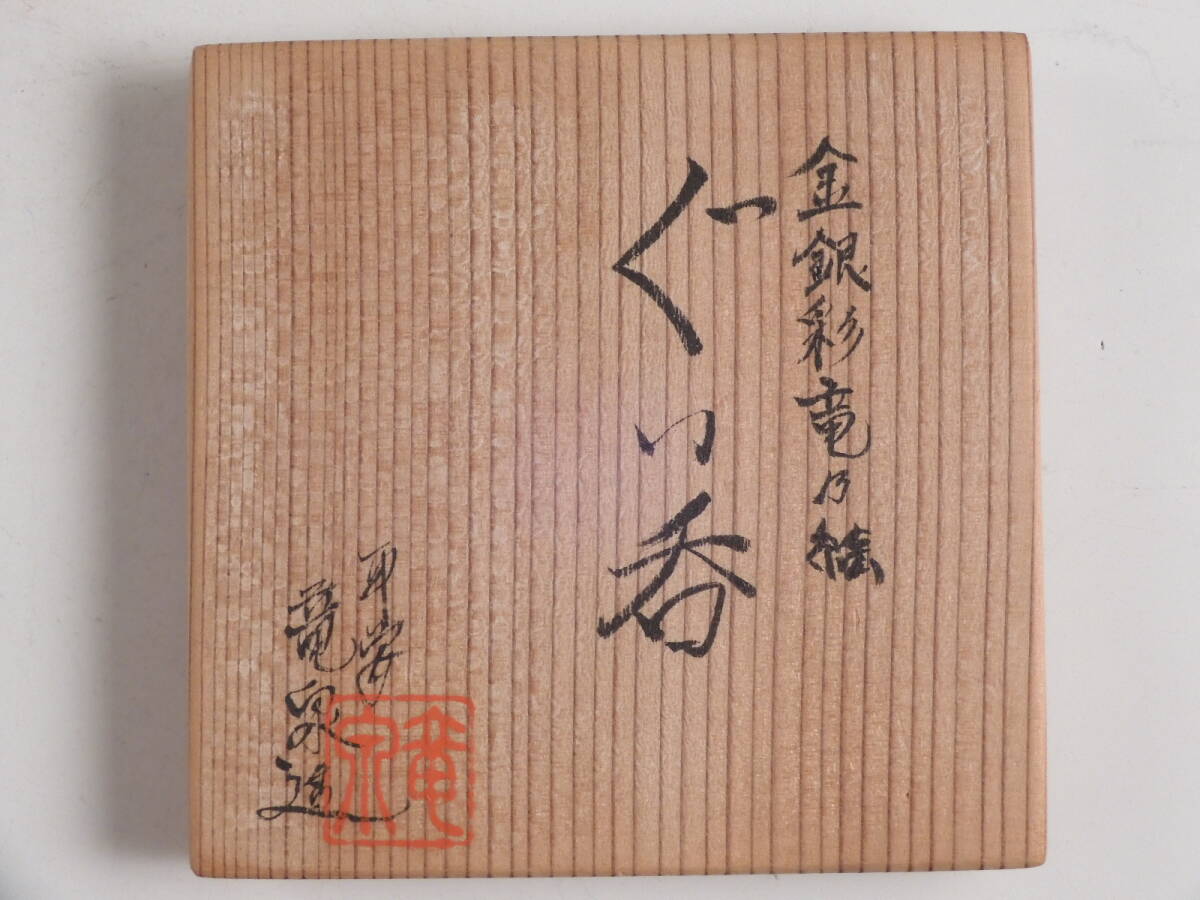 金銀彩竜乃絵
ぐい呑
平安
竜泉造
竜泉